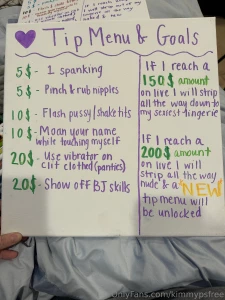 Tip Menu & Goals
5$ - 1 spanking
5$ - Pinch & rub nipples
10$ - Flash pussy/shake tits
10$ - Moan your name
while touching myself
20$ - Use vibrator on
clit clothed (panties)
20$ - Show off BJ skills
If I reach a
150$ amount
on live I will strip
all the way down to
my sexiest lingerie
If I reach a
200$ amount
on live I will
strip all the way
nude & a NEW
tip menu will
be unlocked
onlyfans.com/kimmypsfree